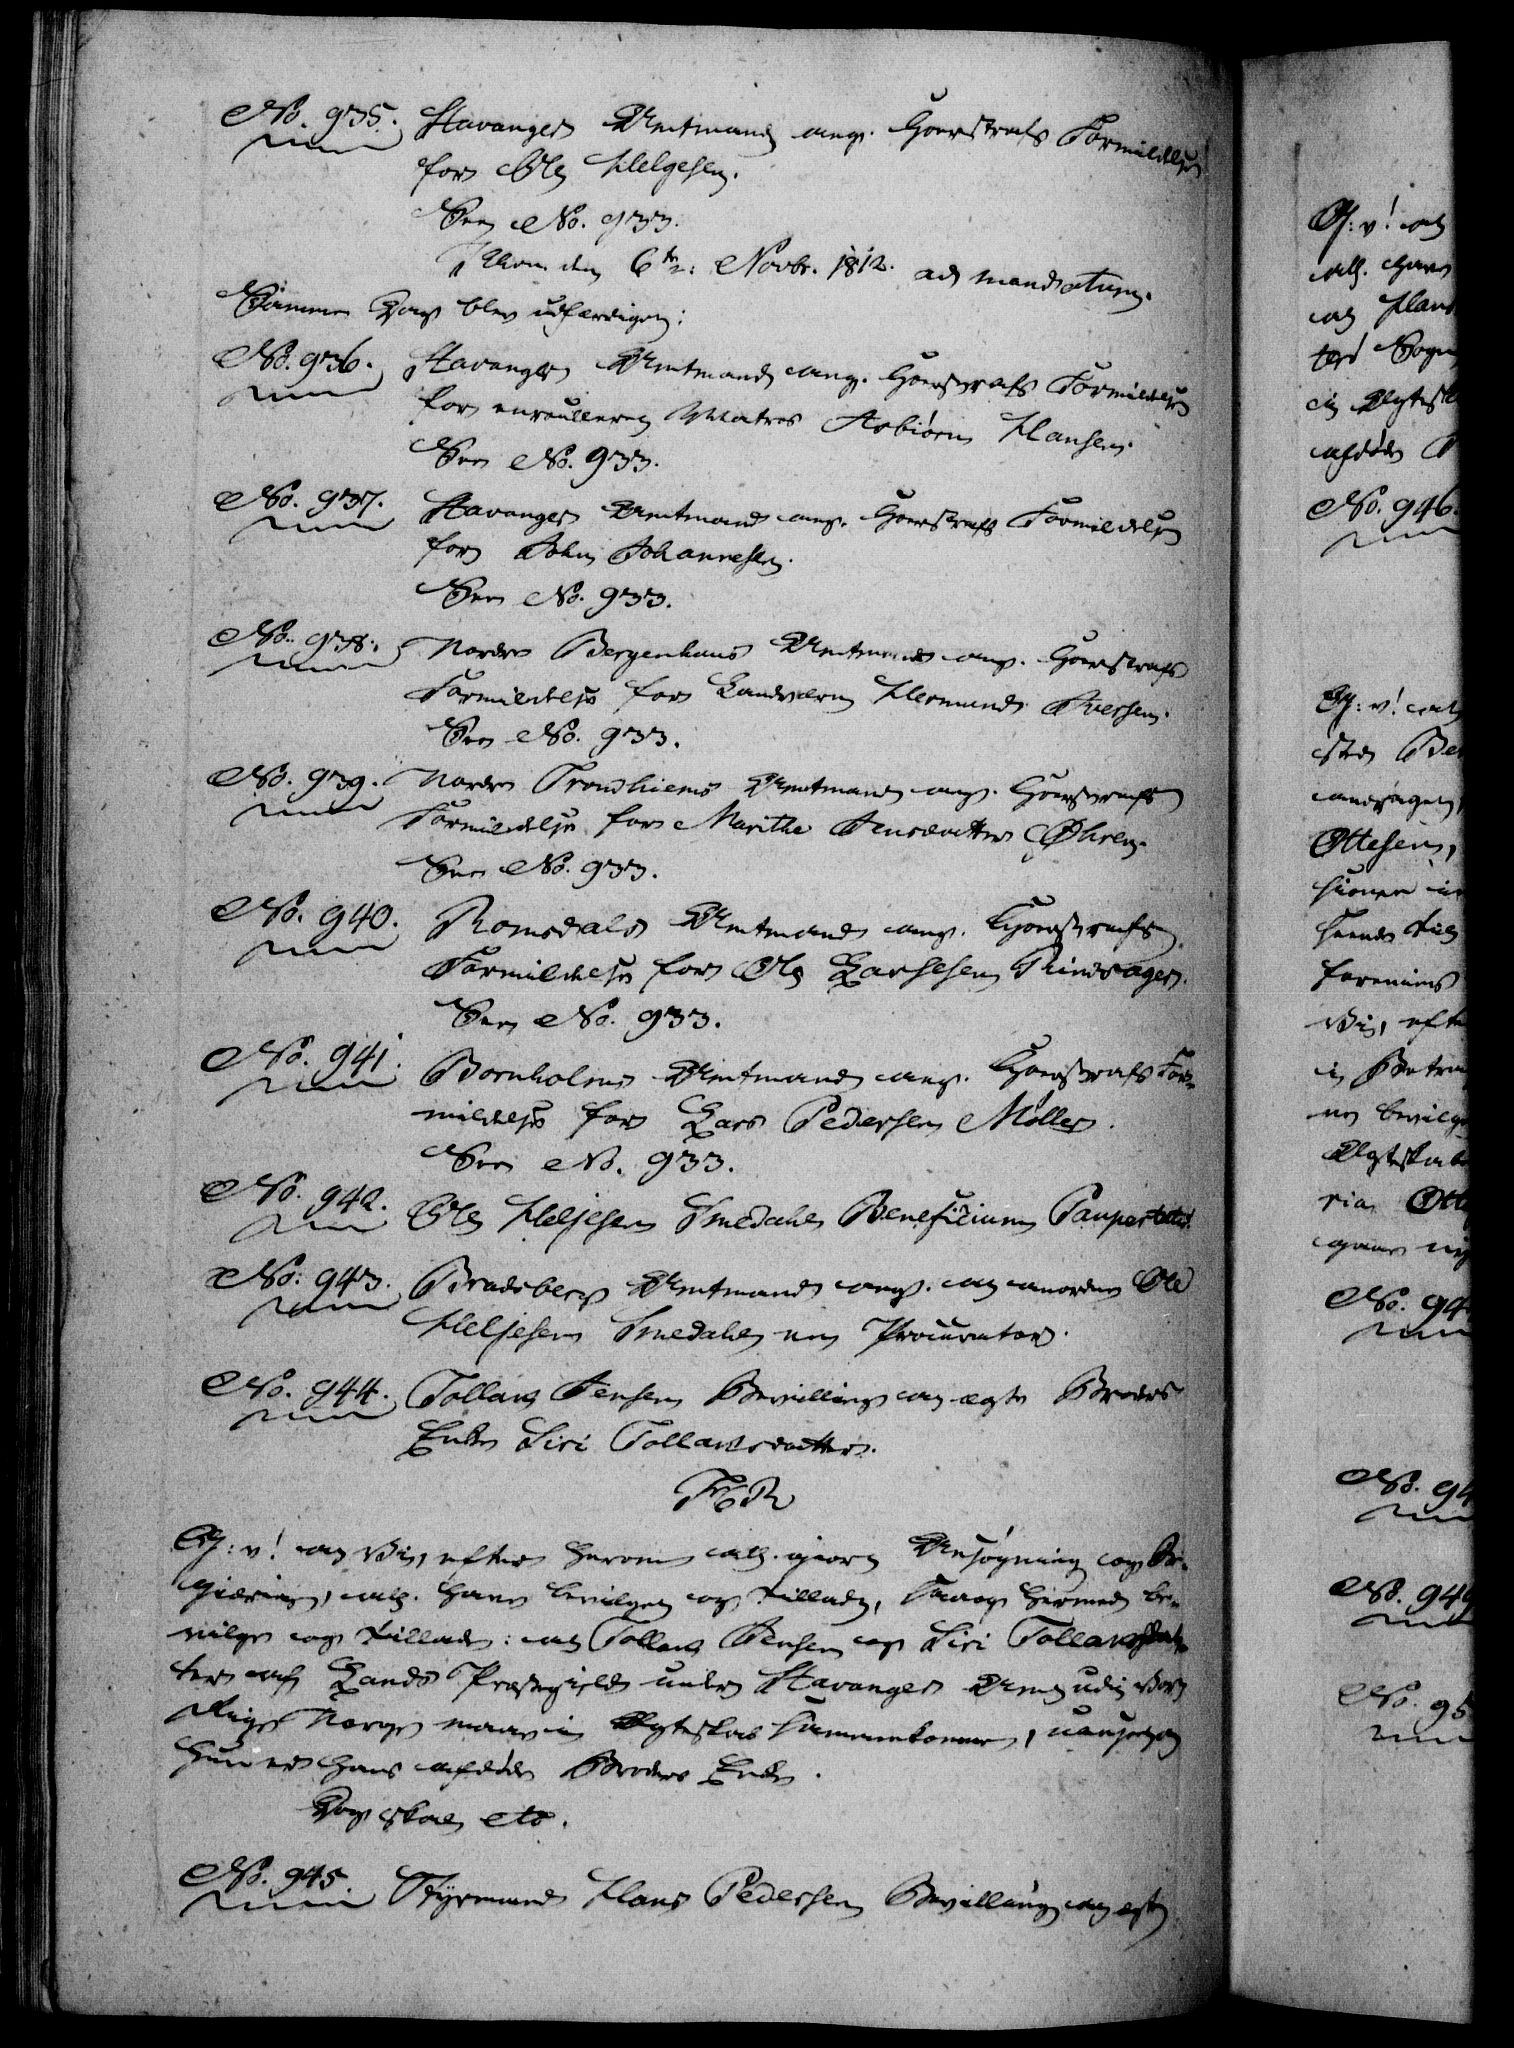 No. 935. Stavangers Amtmand ang. Hoerstrafs Formildelse
for Ole Helgesen.
See No. 933.
Khvn. den 6te: Novbr. 1812. ad mandatum.
Samme Dag blev udfærdiget:
No. 936. Stavangers Amtmand ang. Hoerstrafs Formildelse
for enroulleret Matros Asbiørn Hansen.
See No. 933.
No. 937. Stavangers Amtmand ang. Hoerstrafs Formildelse
for John Johannesen.
See No. 933.
No. 938. Nordre Bergenhuus Amtmand ang. Hoerstrafs
Formildelse for Landværn Hermund Iversen.
See No. 933.
No. 939. Nordre Trondhiems Amtmand ang. Hoerstrafs
Formildelse for Marithe Jensdatter Øhren.
See No. 933.
No. 940. Romsdals Amtmand ang. Hoerstrafs
Formildelse for Ole Larsesen Rindsager.
See No. 933.
No. 941. Bornholms Amtmand ang. Hoerstrafs For-
mildelse for Lars Pedersen Møller.
See No. 933.
No. 942. Ole Heljesen Smedahl Beneficium Paupertatis.
No. 943. Bradsbergs Amtmand ang. at anordne Ole
Heljesen Smedahl en Procurator.
No. 944. Tollak Jensen Bevilling at ægte Broders
Enke Siri Tollaksdatter.
F6R
G: v! at Vi, efter herom all. giort Ansøgning og Be-
giering, all. have bevilget og tilladt, saa og hermed be-
vilge og tillade: at Tollak Jensen og Siri Tollaksdat-
ter af Lands Præstegield under Stavanger Amt udi Vort
Rige Norge maae i Ægteskab sammenkomme, uanseet at
hun er hans afdøde Broders Enke.
Dog skal etc.
No. 945. Styrmand Hans Pedersen Bevilling at ægte
G: v! at
all. have
at Hans
ters Sogn
i Ægtesk
afdøde
No. 946.
G: v! at
sted Be
andragen,
Ottesen,
Vi, efte
i Betra
Ægteskab
ria Ott
No. 94
No. 94
No. 949
No. 95